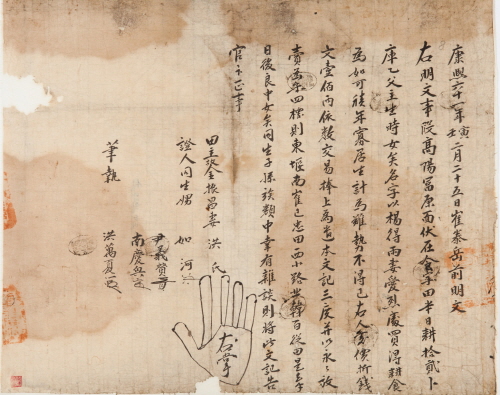 康熙六十一年壬寅二月二十五日崔泰岳前明文
右明文事段高陽冨原面伏在字田半日耕拾貳卜
庫乙父主生時女矣名字以楊得雨妻愛烈處買得耕食
為如可積年寡居生計為難勢不得已右人價折錢
文壹佰両依數交易捧上為遣本文記三度并以永永放
賣為乎四標則東堰南崔己忠田西小路北百從田是乎
日後良中女矣同生子孫族類中幸有雜談則將此文記告
官卞正事
田主金振昌妻洪氏
證人同生娚如河
尹義賢
南慶
筆執 洪萬夏
右掌